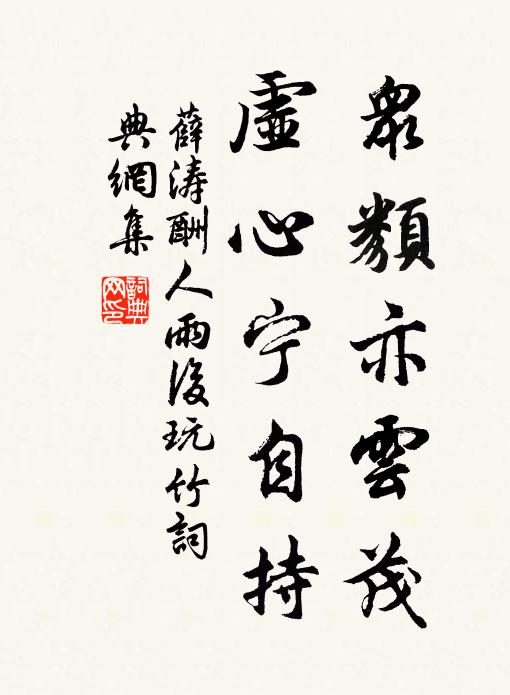 眾類亦雲茂
虛心宁自持
薛濤酬人雨後玩竹詞
典網集
詞典网印